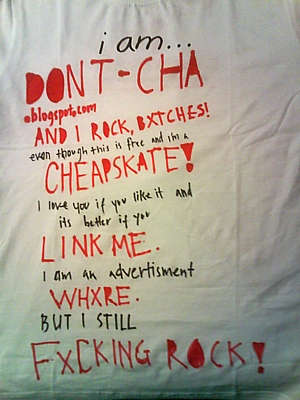 i am...
DONT-CHA
.blogspot.com
AND I ROCK, BXTCHES!
even though this is free and im a
CHEAPSKATE!
I love you if you like it and
its better if you
LINK ME.
I am an advertisment
WHXRE.
BUT I STILL
FXCKING ROCK!